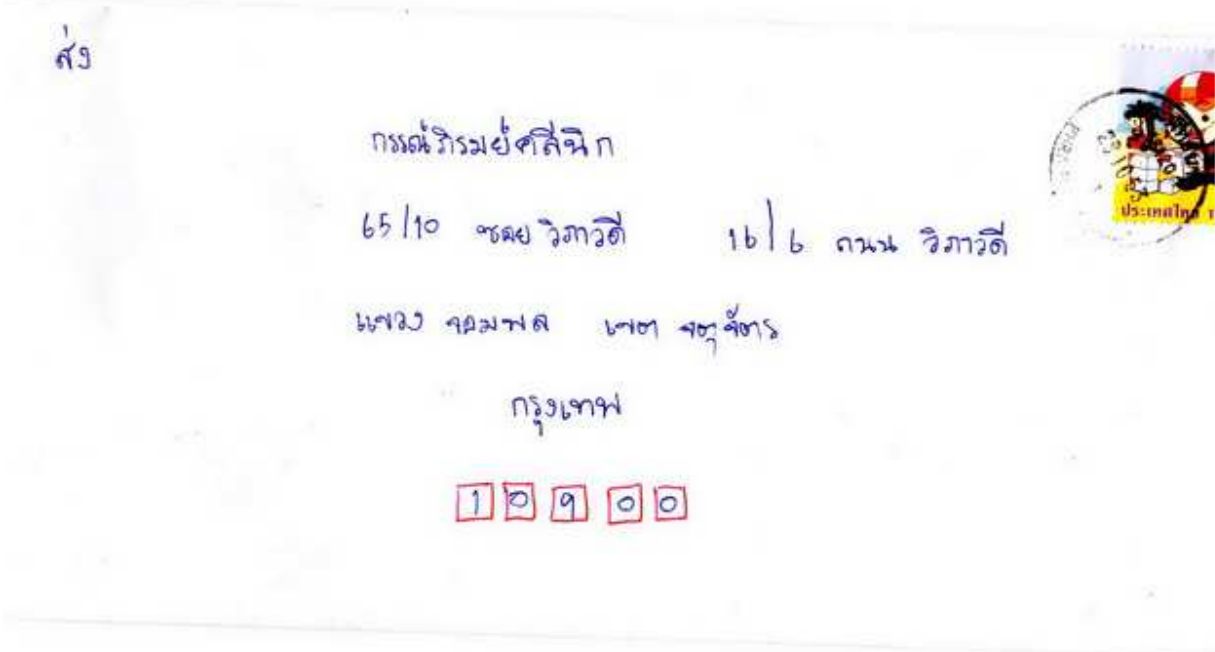 ส่ง
กรรณ์ภิรมย์คลีนิก
65/10 ซอย วิภาวดี 16/6 ถนน วิภาวดี
แขวง จอมพล เขต จตุจักร
กรุงเทพ
10900
ประเทศไทย